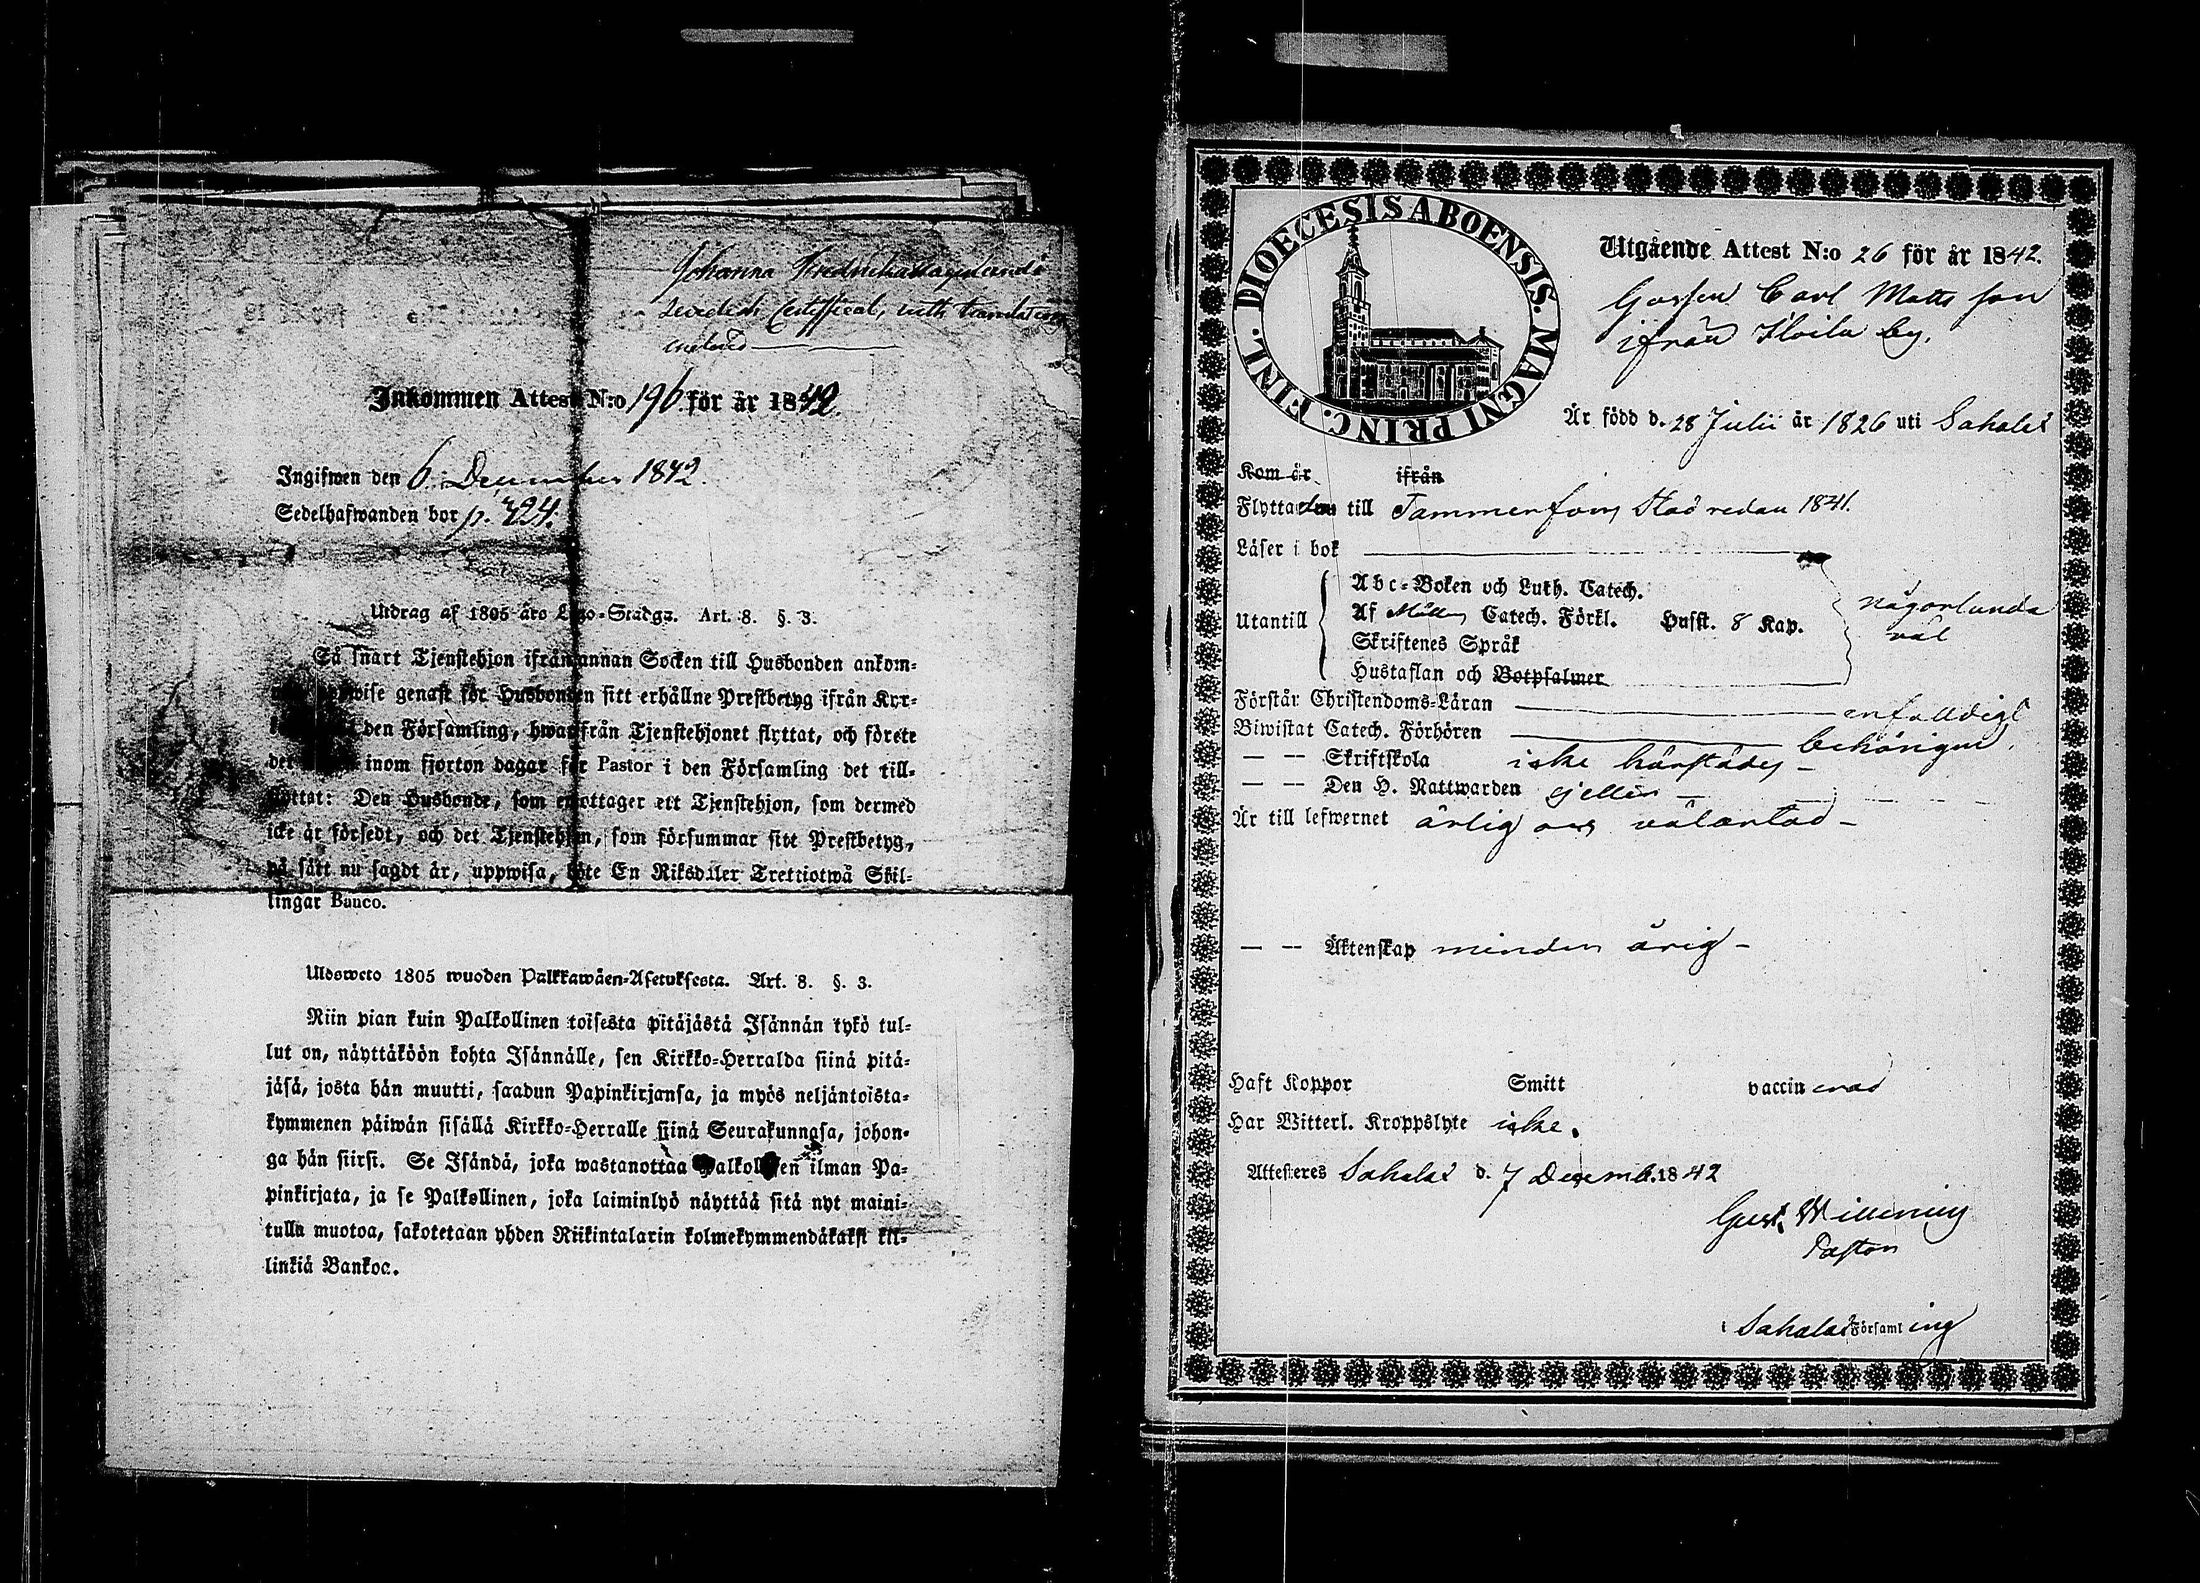 Johanna Fredrika
Swedish Certificat, with translation
Inkommen Attest N:o 196. för år 1842.
Ingifwen den 6. December 1842.
Sedelhafwanden bor p. 424.
Utdrag af 1805 års Lego-Stadga. Art. 8. §. 3.
Så snart Tjenstehjon ifrån annan Socken till Husbonden ankom-
wise genast för Husbonden sitt erhållne Prestbetyg ifrån Kyr-
den Församling, hwarifrån Tjenstehjonet flyttat, och förete
det inom fjorton dagar för Pastor i den Församling det till-
flyttat: Den Husbonde, som emottager ett Tjenstehjon, som dermed
icke är försedt, och det Tjenstehjon, som försummar sitt Prestbetyg,
på sätt nu sagdt är, uppwisa, böte En Riksdaler Trettiotwå Skil-
lingar Banco.
Uloswetо 1805 wuoden Palkkawäen-Asetuksesta. Art. 8. §. 3.
Niin pian kuin Palkollinen toisesta pitäjästä Isännän tykö tul-
lut on, näyttäköön kohta Isännälle, sen Kirkko-Herralda siinä pitä-
jäsä, josta hän muutti, saadun Papinkirjansa, ja myös neljäntoista-
kymmenen päiwän sisällä Kirkko-Herralle siinä Seurakunnasa, johon-
ga hän siirsi. Se Isändä, joka wastanottaa Palkollisen ilman Pa-
pinkirjata, ja se Palkollinen, joka laiminlyö näyttää sitä nyt maini-
tulla muotoa, sakotetaan yhden Riikintalarin kolmekymmendäkaksi kil-
linkiä Bankoa.
DIOECESIS ABOENSIS. MAGNI PRINC. FINL.
Utgående Attest N:o 26 för år 1842.
Gossen Carl Matts son
ifrån Hoila by.
Är född d. 28 Julii år 1826 uti Sahalax
Kom år ifrån
Flyttade till Tammerfors Stad redan 1841.
Läser i bok
Abc-Boken och Luth. Catech.
Utantill Af Möllers Catech. Förkl. Husst. 8 Kap. någorlunda
Skriftenes Språk väl
Hustaflan och Botpsalmer
Förstår Christendoms-Läran enfaldigt
Biwistat Catech. Förhören behörigen
— — Skriftskola icke härstädes —
— — Den H. Nattwarden ejeller —
Är till lefwernet ärlig och välartad —
— — Äktenskap minder årig —
Haft Koppor Smitt vaccinerad
Har Witterl. Kroppslyte icke.
Attesteres Sahalax d. 7 Decemb. 1842
Gust.
Pastor
i Sahalax Församling